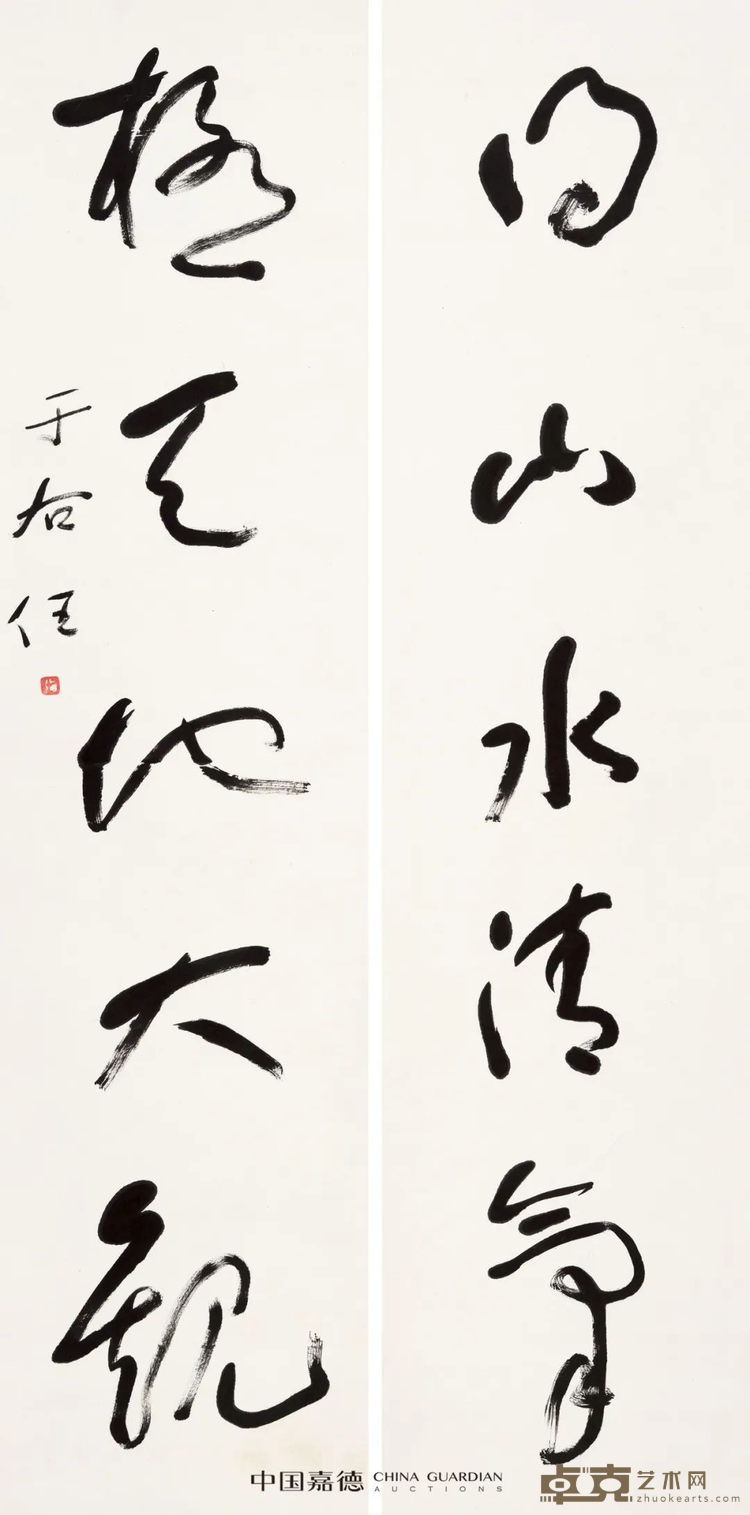 得山水清氣
極天地大觀
于右任
中国嘉德 CHINA GUARDIAN
AUCTIONS
卓克艺术网
zhuokearts.com